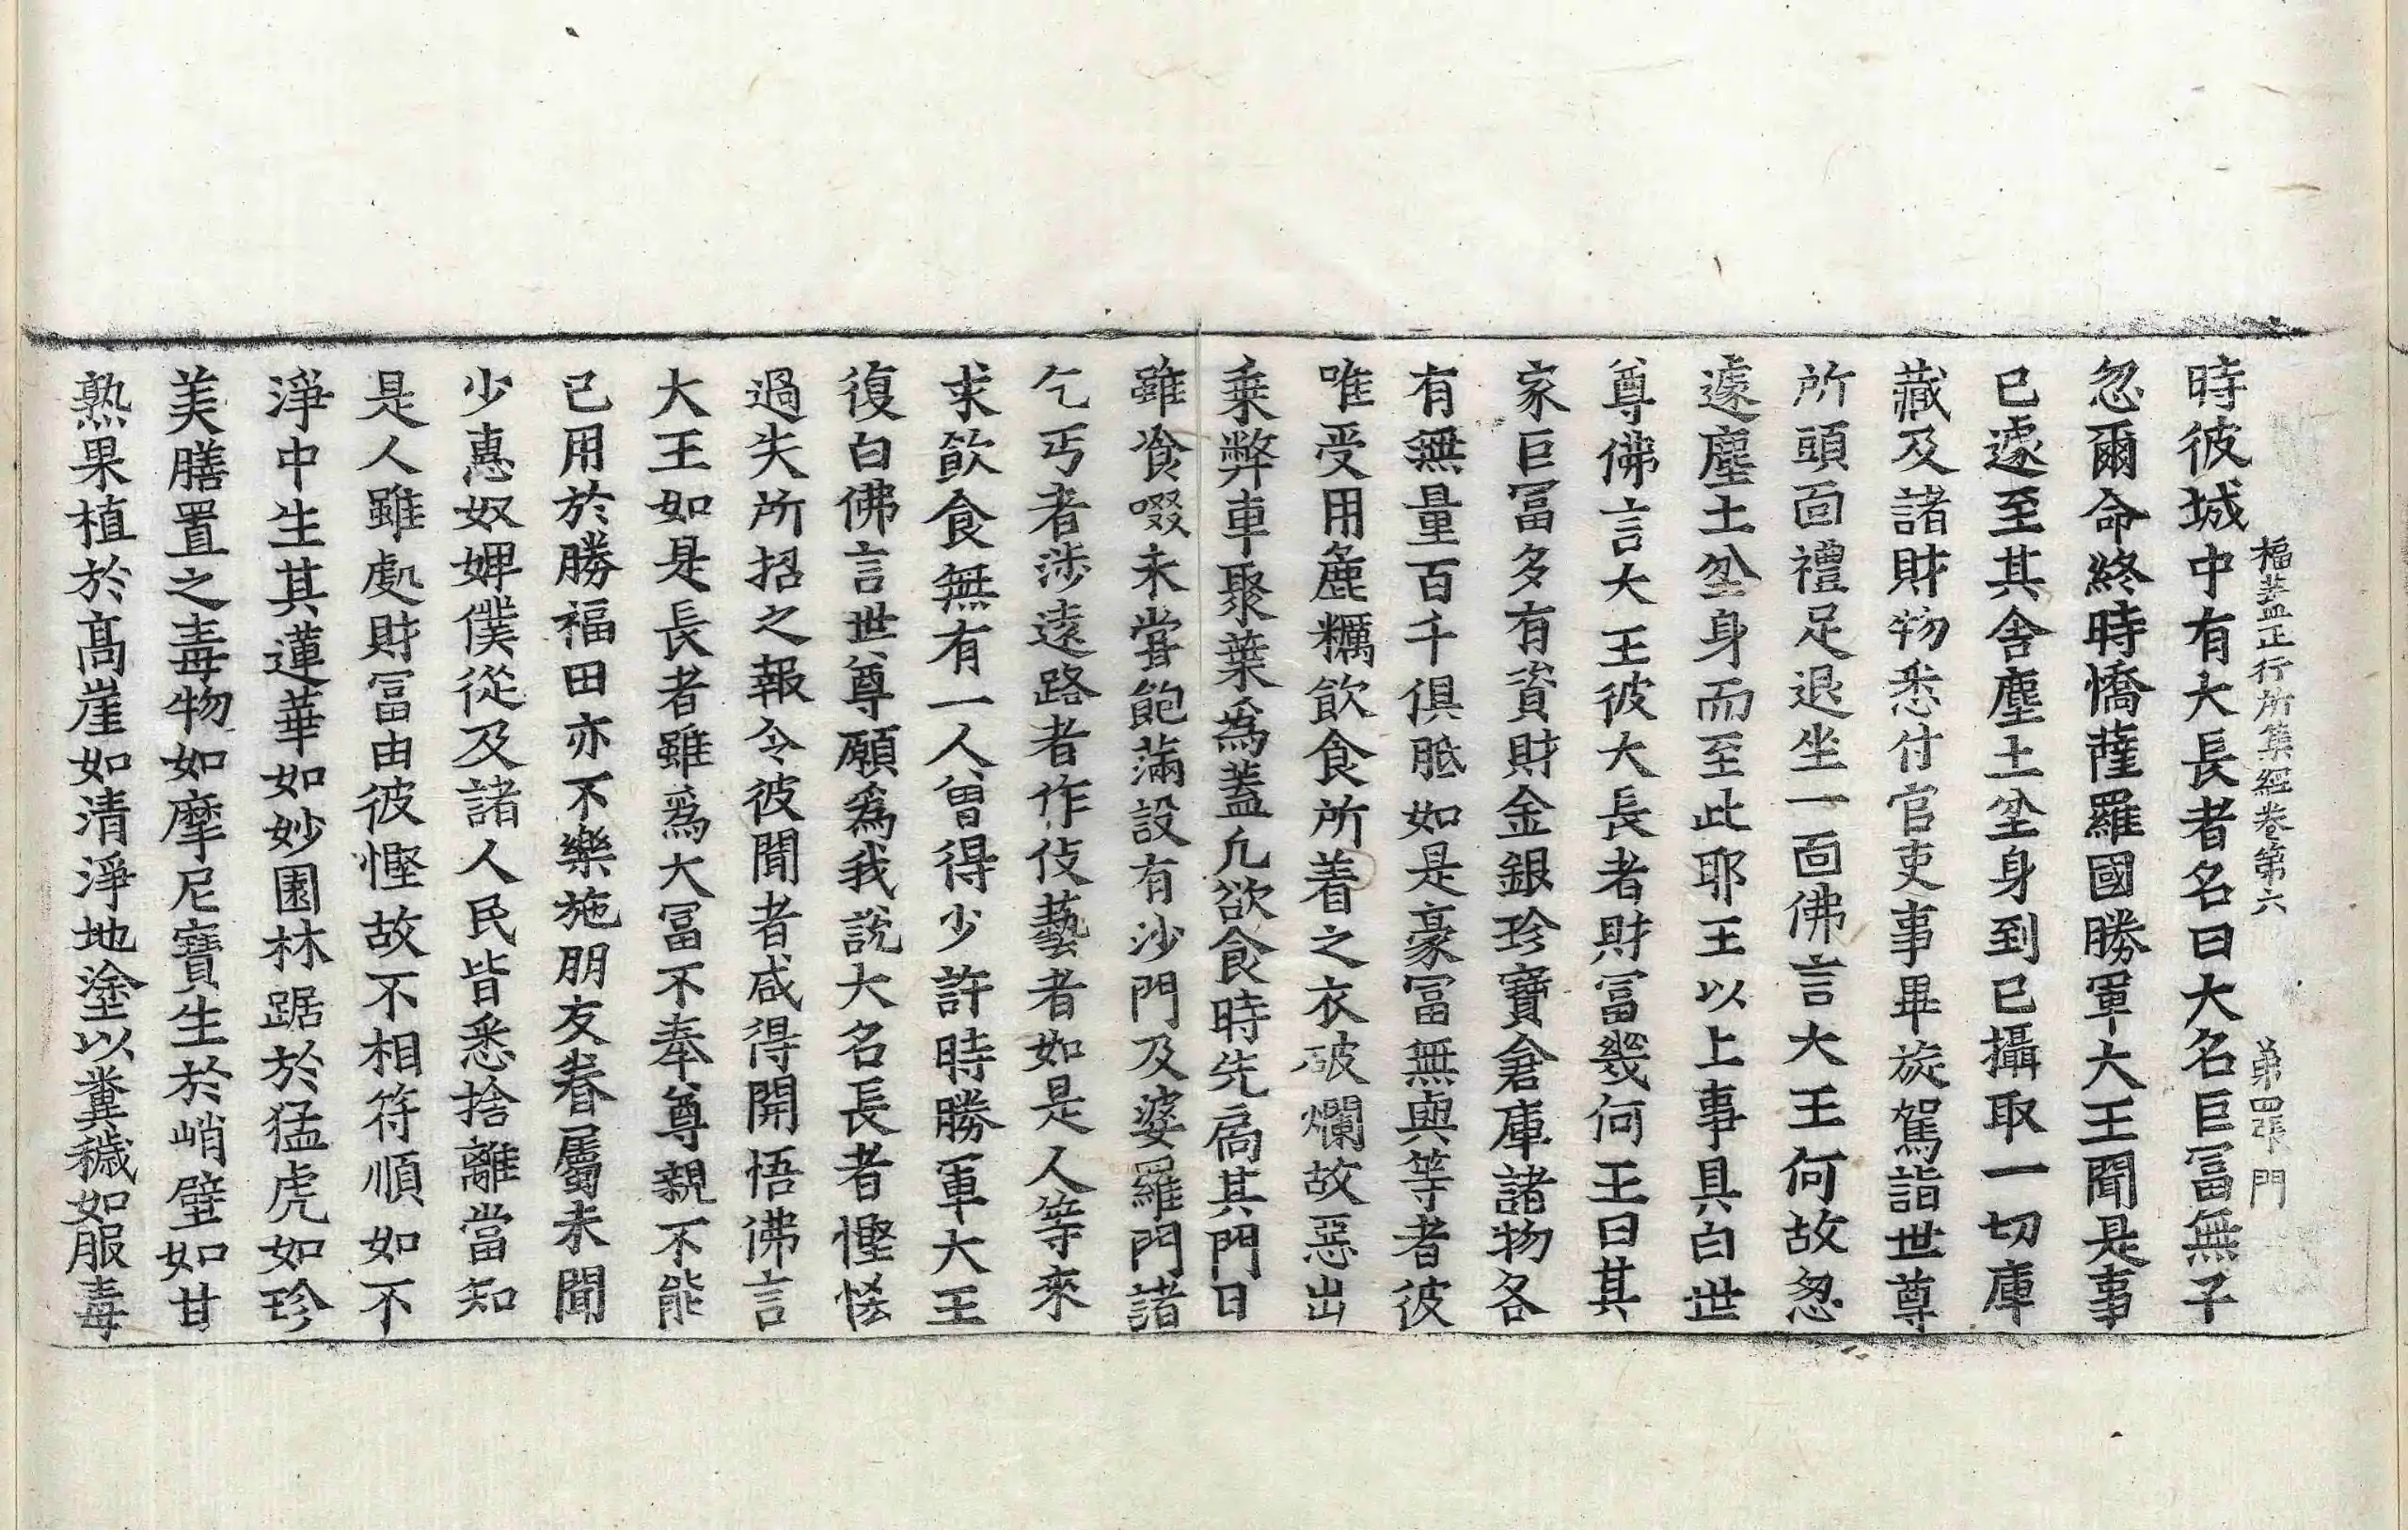 福蓋正行所集經卷第六 第四張 門
時彼城中有大長者名曰大名巨冨無子
忽爾命終時憍薩羅國勝軍大王聞是事
已遽至其舍塵土坌身到已攝取一切庫
藏及諸財物悉付官吏事畢旋駕詣世尊
所頭面禮足退坐一面佛言大王何故怱
遽塵土坌身而至此耶王以上事具白世
尊佛言大王彼大長者財冨幾何王曰其
家巨冨多有資財金銀珍寶倉庫諸物各
有無量百千俱胝如是豪冨無與等者彼
唯受用麁糲飲食所着之衣破爛故惡出
乗弊車聚葉為蓋凢欲食時先扄其門日
雖飡啜未甞飽滿設有沙門及婆羅門諸
乞丐者涉遠路者作伎藝者如是人等來
求飲食無有一人曽得少許時勝軍大王
復白佛言世尊願為我說大名長者慳悋
過失所招之報令彼聞者咸得開悟佛言
大王如是長者雖為大冨不奉尊親不能
已用於勝福田亦不樂施朋友眷屬未聞
少惠奴婢僕從及諸人民皆悉捨離當知
是人雖處財冨由彼慳故不相符順如不
淨中生其蓮華如妙園林踞於猛虎如珍
美膳置之毒物如摩尼寶生於峭壁如甘
熟果植於髙崖如清淨地塗以糞穢如服毒